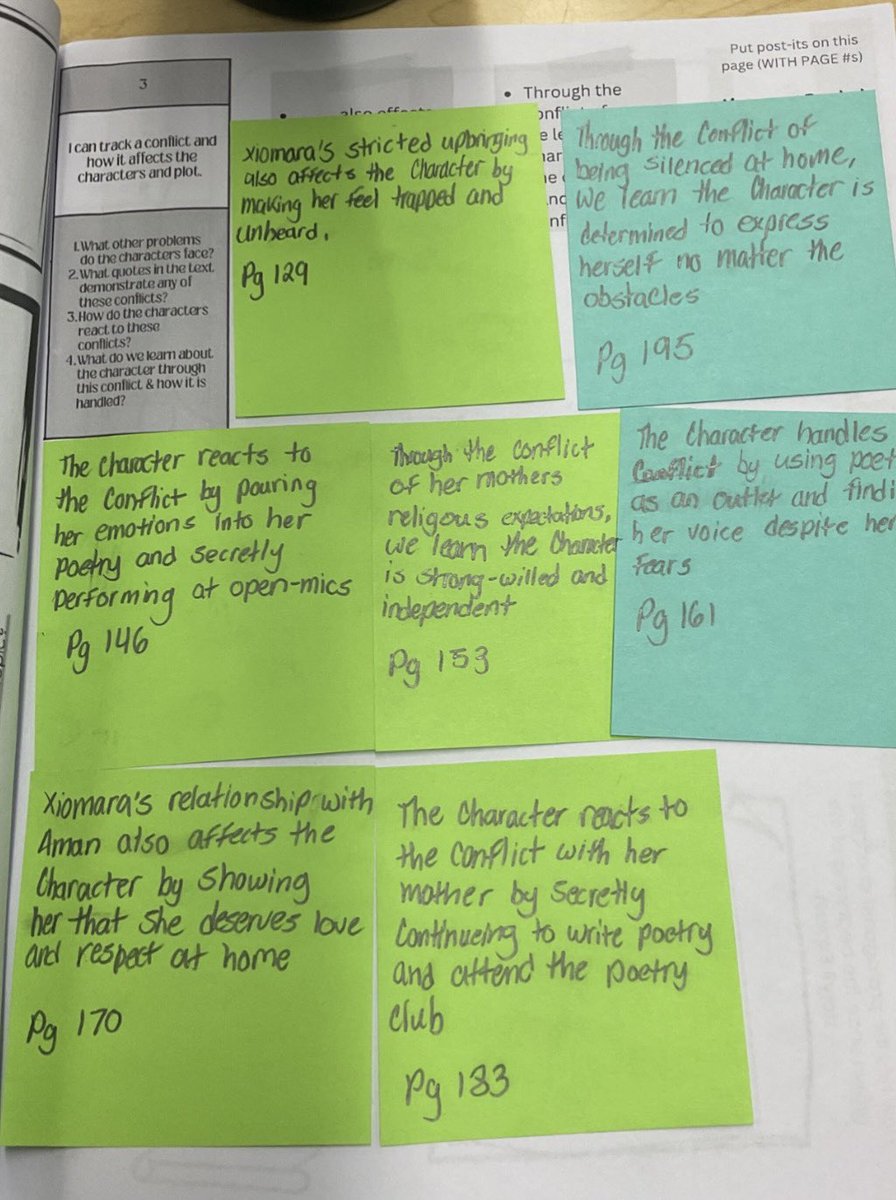 Put post-its on this
page (WITH PAGE #s)
3
I can track a conflict and
how it affects the
characters and plot.
1.What other problems
do the characters face?
2.What quotes in the text
demonstrate any of
these conflicts?
3.How do the characters
react to these
conflicts?
4.What do we learn about
the character through
this conflict & how it is
handled?
also affects
• Through the
Xiomara's stricted upbringing
also affects the Character by
making her feel trapped and
unheard.
Pg 129
Through the Conflict of
being silenced at home,
we learn the Character is
determined to express
herself no matter the
obstacles
Pg 195
The character reacts to
the Conflict by pouring
her emotions into her
poetry and secretly
performing at open-mics
Pg 146
Through the conflict
of her mothers
religous expectations,
we learn the Character
is strong-willed and
independent
Pg 153
The Character handles
Conflict by using poet
as an outlet and findi
her voice despite her
fears
Pg 161
Xiomara's relationship with
Aman also affects the
Character by showing
her that she deserves love
and respect at home
Pg 170
The Character reacts to
the conflict with her
mother by secretly
Continueing to write poetry
and attend the poetry
club
Pg 183